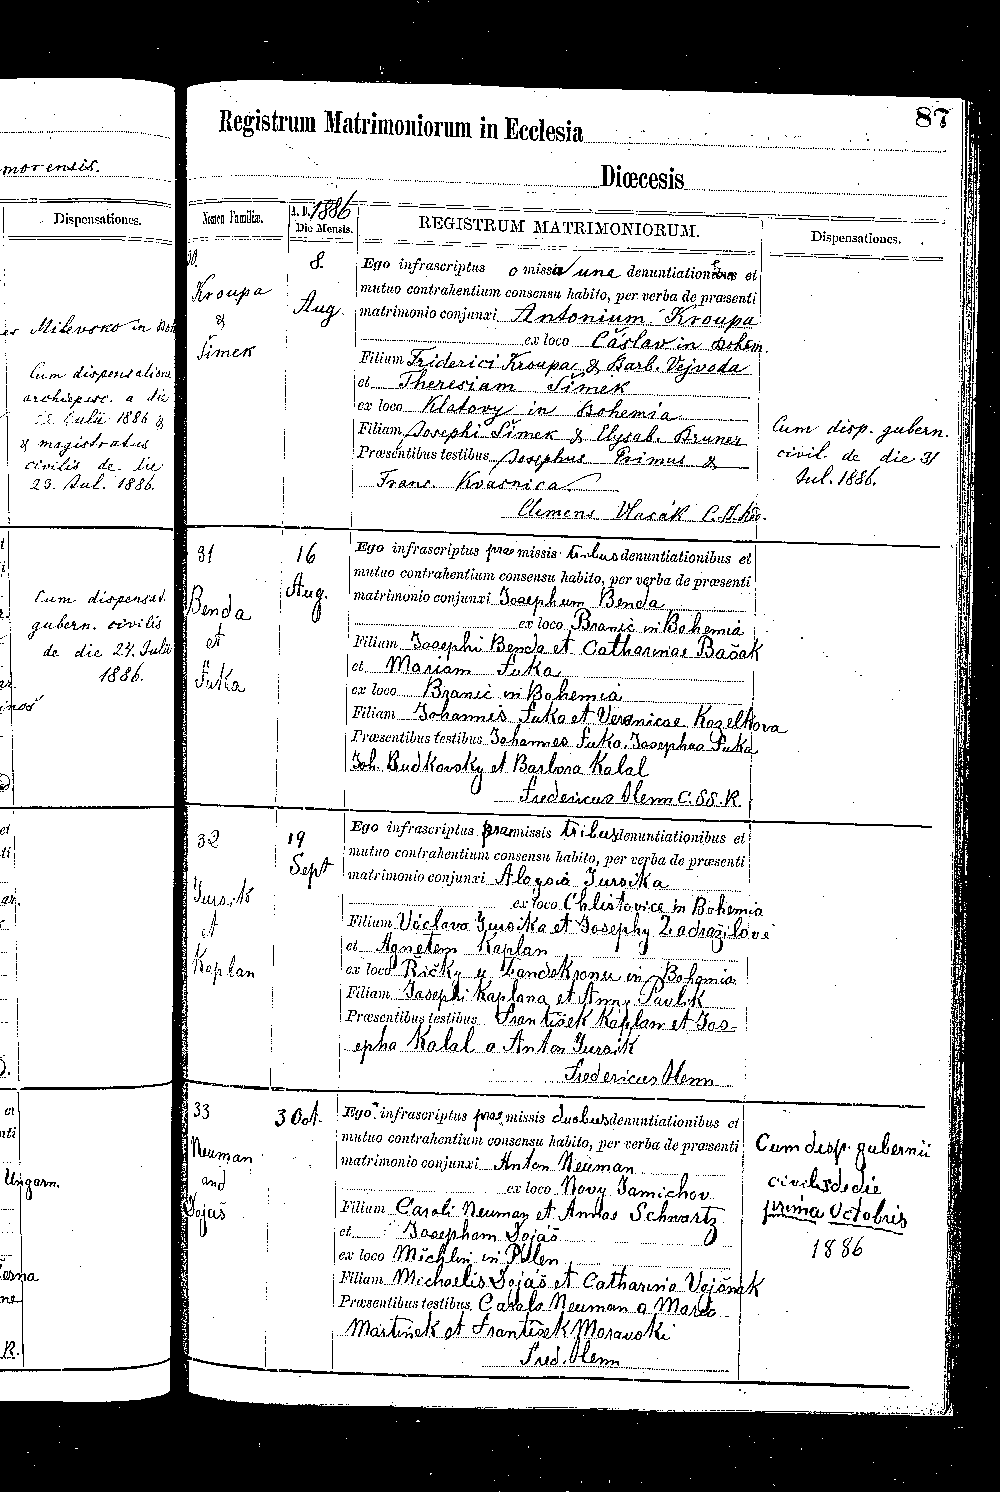 morensis.
Dispensationes.
Milevsko in Boh
Cum dispensatione
archiepisc. a die
Julii 1886 &
& magistratus
civilis de die
23. Jul. 1886.
Cum dispensat.
gubern. civilis
de die 24. Julii
1886.
Ungarn.
R.
87
Registrum Matrimoniorum in Ecclesia
Diœcesis
Nomen Familiæ.
A. D. 1886
Die Mensis.
REGISTRUM MATRIMONIORUM.
Dispensationes.
30.
Kroupa
&
Šimek
8.
Aug.
Ego infrascriptus omissis una denuntiationibus et
mutuo contrahentium consensu habito, per verba de præsenti
matrimonio conjunxi Antonium Kroupa
ex loco Cáslav in Bohem.
Filium Friderici Kroupa & Barb. Vejvoda
et Theresiam Šimek
ex loco Klatovy in Bohemia
Filiam Josephi Šimek & Elysab. Bruner
Præsentibus testibus Josephus Primus &
Franc. Kvasnica
Clemens Vlasák
Cum disp. gubern.
civil. de die 31
Jul. 1886.
31
Benda
et
Fuka
16
Aug.
Ego infrascriptus præmissis tribus denuntiationibus et
mutuo contrahentium consensu habito, per verba de præsenti
matrimonio conjunxi Josephum Benda
ex loco Branic in Bohemia
Filium Josephi Benda et Catharinae Bašak
et Mariam Fuka
ex loco Branic in Bohemia
Filiam Johannis Fuka et Veronicae Kozelkova
Præsentibus testibus Johannes Fuka, Josephaa Fuka
Joh. Budkovsky et Barbora Kalal
Fredericus Henn C.SS.R.
32
Jursik
et
Kaplan
19
Sept
Ego infrascriptus præmissis tribus denuntiationibus et
mutuo contrahentium consensu habito, per verba de præsenti
matrimonio conjunxi Aloysia Jursika
ex loco Chlistovice in Bohemia
Filium Václava Jursika et Josephy Zadražilové
et Agnetem Kaplan
ex loco Řičky u Landskronu in Bohemia
Filiam Josephi Kaplana et Anny Pavlik
Præsentibus testibus František Kaplan et Jos-
epha Kalal a Anton Jursik
Fredericus Henn
33
Neuman
and
Dojaš
3 Oct.
Ego infrascriptus præmissis duobus denuntiationibus et
mutuo contrahentium consensu habito, per verba de præsenti
matrimonio conjunxi Anton Neuman
ex loco Novy Jamichov
Filium Caroli Neuman et Annae Schwartz
et Josepham Dojaš
ex loco Michlin in Pilen
Filiam Michaelis Dojaš et Catharina Vojšnek
Præsentibus testibus Carolo Neuman a Marta
Martinek et František Moravski
Fred. Henn
Cum disp. gubernii
civilis de die
prima Octobris
1886